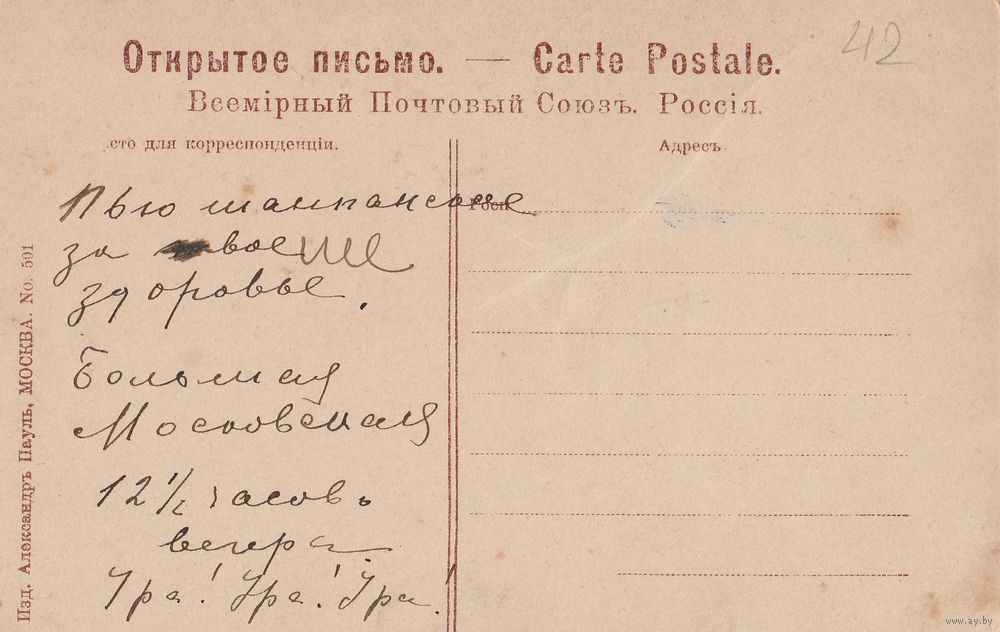 42
Открытое письмо. — Carte Postale.
Всемірный Почтовый Союзъ. Россія.
сто для корреспонденціи.
Адресъ
Пью шампанское
за вое
здоровье.
Большая
Московская
12 1/2 часовъ
вечера
Ура! Ура! Ура!
Изд. Александръ Пауль, МОСКВА. No. 501
www.ay.by